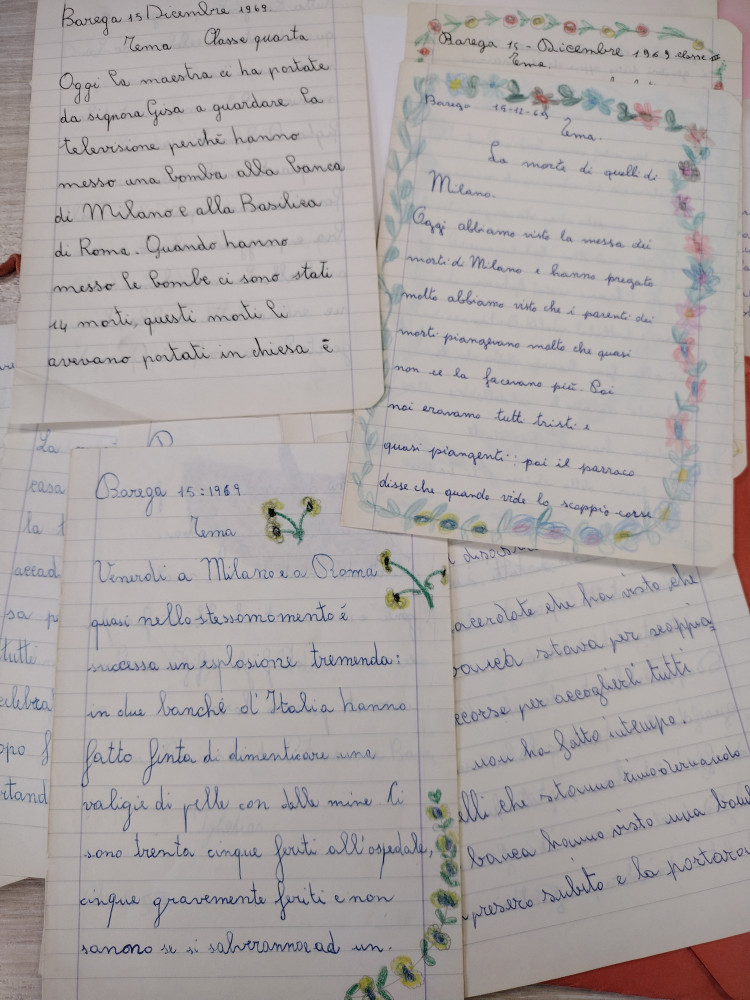 Barega 15 Dicembre 1969.
Tema Classe quarta
Oggi la maestra ci ha portate
da signora Gisa a guardare la
televisione perché hanno
messo una bomba alla banca
di Milano e alla Basilica
di Roma. Quando hanno
messo le bombe ci sono stati
14 morti, questi morti li
avevano portati in chiesa é
Barega 15 - Dicembre 1969 classe III
Tema.
Barega 15-12-69
Tema.
La morte di quelli di
Milano.
Oggi abbiamo visto la messa dei
morti di Milano e hanno pregato
molto abbiamo visto che i parenti dei
morti piangevano molto che quasi
non ce la facevano più. Poi
noi eravamo tutti tristi e
quasi piangenti: poi il parroco
disse che quando vide lo scoppio corse
Barega 15:1969
Tema
Venerdi a Milano e a Roma
quasi nello stesso momento é
successa un esplosione tremenda:
in due banché d'Italia hanno
fatto finta di dimenticare una
valigie di pelle con delle mine. Ci
sono trenta cinque feriti all'ospedale,
cinque gravemente feriti e non
sanono se si salveranno ad un.
La
casa
la
accad
sa
tutti
celebra
opo
rtand
acerdote che ha visto che
banca stava per scoppia=
ccorse per accoglierli tutti
non ha fatto intempo.
elli che stanno rimodernando
banca hanno visto una bom
presero subito e la portaro